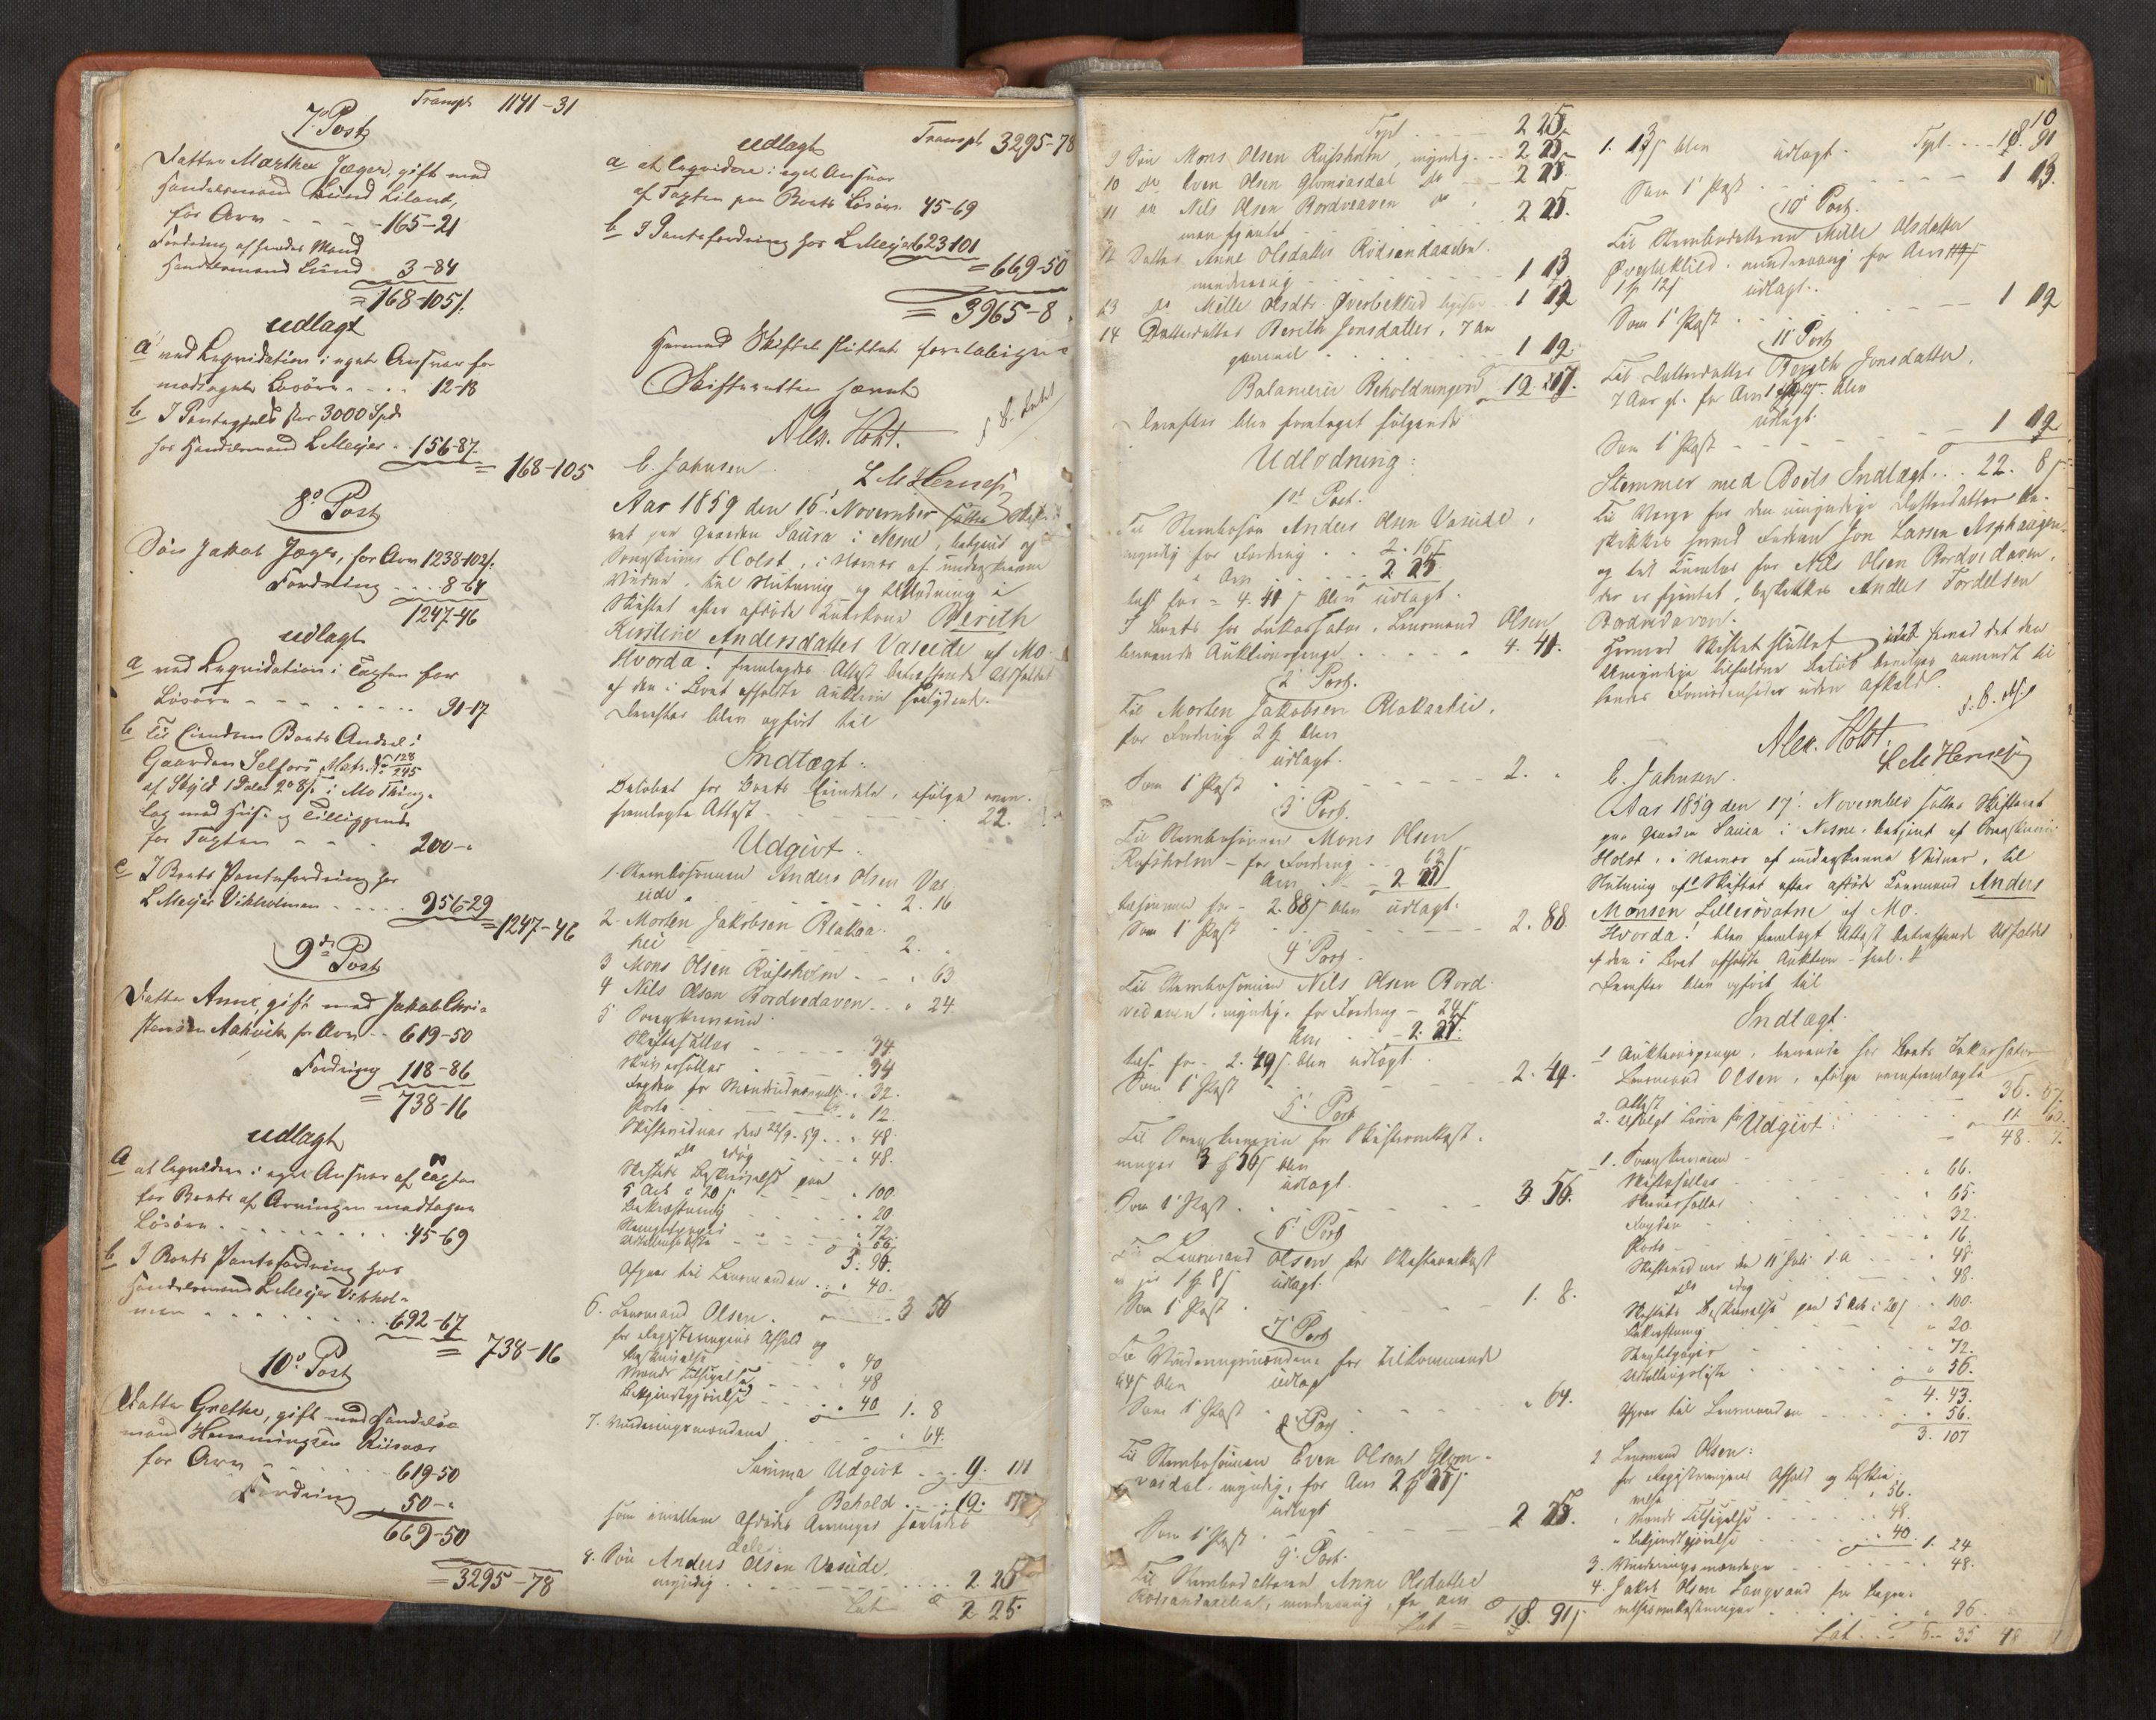 Transpt 1141-31
7de Post
Datter Marthe Jæger, gift med
Handelsmand Lund Liland,
for Arv - - - 165-21
Fordring af hendes Mand
Handelsmand Lund 3-84
= 168-105/.
udlagt
a ved Liqvidation i eget Ansvar for
modtagne Løsøre . . . . 12-18
b I Pantegjæld stor 3000 Spd
hos Handelsmand L Meyer . 156-87.
= 168-105
8de Post
Søn Jakob Jæger, for Arv 1238-102/.
Fordring . . . 8-64
1247-46
udlagt
a ved Liqvidation i Taxten for
Løsøre - - - - - - - 91-17
b Til Eiendom Boets Andeel i
Gaarden Selfors, Matr. No 128/245
af Skyld 1 Daler 2 8/ i Mo Thing-
lag med Huse og Tilliggende
for Taxten - - - 200-"
c I Boets Pantefordring hos
L Meyer Vikholmen . . . . . 956-29
= 1247-46
9de Post
Datter Anne, gift med Jakob Chri-
stensen Aakvik for Arv - 619-50
Fordring 118-86
= 738-16
udlagt
a at liqvidere i eget Ansvar af Taxten
for Boets af Arvingen modtagne
Løsøre - - - - - - - 45-69
b I Boets Pantefordring hos
Handelsmand L Meyer Vikhol-
men . . . . . . . . 692-67
= 738-16
10de Post
Datter Grethe, gift med Handels-
mand Hemmingsen Riisvær
for Arv - - - - - 619-50
Fordring 50-"
669-50
= 3295-78
Transpt 3295-78
udlagt
a at liqvidere i eget Ansvar
af Taxten paa Boets Løsøre 45-69
b I Pantefordring hos L Meyer 623-101
= 669-50
= 3965-8
Hermed Skiftet sluttet foreløbigen
Skifteretten hævet
Alex. Holst.
C. Johnsen. L M Hernes
Aar 1859 den 16de November sattes Skifte-
ret paa Gaarden Saura i Nesne, betjent af
Sorenskriver Holst, i Nærvær af undertegnede
Vidner, til Slutning og Udlodning i
Skiftet efter afdøde Enkekone Berith
Kirstine Andersdatter Vaseide af Mo.
Hvorda! fremlagdes Attest betræffende Udfaldet
af den i Boet afholdte Auktion saalydende.
Derefter blev opført til
Indtægt:
Beløbet for Boets Eiendele, ifølge oven-
fremlagte Attest - - - - - 22.
Udgivt:
1. Stervbosønnen Anders Olsen Vas-
eide . . . . . . . 2. 16
2. Morten Jakobsen Blakaa-
hei - - - - 2. "
3 Mons Olsen Rufsholm - - " 63
4 Nils Olsen Bordvedaven . . " 24.
5 Sorenskriveren:
Skiftesallær - - - - - 34.
Skriversallær . . . . . 34
Fogden for Mændsudnævnelse . " 32.
Porto - - - - - " 12.
Skiftevidner den 22/9-59 . . " 48.
do idag - - - " 48.
Skiftets Beskrivelse paa
5 Ark à 20/ - - - " 100
Bekræftning - - - - - " 20.
Stempletpapir - - - - 72.
Udstedelse - - - - " 56.
5. 90.
Afgaar til Lensmanden . . " 40.
3 56
6. Lensmand Olsen.
for Registreringens Afhold og
Beskrivelse - - - " 40
Mænds Tilsigelse - - - " 48
Bekjendtgjørelse - - - " 40 1. 8
7. Vurderingsmændene - - - " 64.
Summa Udgivt . . 9. 111
I Behold . . . 12. 17
som imellem Afdødes Arvinger saaledes
deles:
8. Søn Anders Olsen Vaseide,
myndig . . . . . . . . 2. 25
Lat 2 25.
Tspt . . . . 2 25.
9 Søn Mons Olsen Rufsholm, myndig . . . 2 25.
10 do Even Olsen Glomvasdal do - - 2 25.
11 do Nils Olsen Bordvedaven do . 2 25.
men sjantet
12 Datter Anne Olsdatter Rødsandaaelen.
mindreaarig - - - 1 13.
13 do Mille Olsdtr. Øverbeklied ligesaa . . 1 12
14 Datterdatter Berith Jonsdatter, 7 Aar
gammel . . . . . . 1 12.
Balancerer Beholdningen 12-117.
Derefter blev foretaget følgende
Udlodning:
1ste Post.
Til Stervbosøn Anders Olsen Vaseide,
myndig for Fordring . . 2. 16/
" Arv . . . . . 2 25.
tilsammen = 4. 41/ blev udlagt.
I Boets hos Inkassator, Lensmand Olsen
beroende Auktionspenge . . . . " 4. 41.
2de Post.
Til Morten Jakobsen Blakaahei.
for Fordring 2 Spd blev
udlagt.
Som 1ste Post - - - - - 2. "
3de Post.
Til Stervbosønnen Mons Olsen
Rufsholm - for Fordring - - 63/
Arv . - 2 25/
tilsammen for - 2. 88/ blev udlagt.
Som 1ste Post - - - - - 2. 88.
4de Post.
Til Stervbosønnen Nils Olsen Bord-
vedaven, myndig, for Fordring - 24/
Arv - 2. 25.
tils. for - 2. 49/ blev udlagt.
Som 1ste Post - - - - - 2. 49.
5te Post
Til Sorenskriveren for Skifteomkost-
ninger 3 Spd 56/ blev
udlagt.
Som 1ste Post . . . . 3. 56.
6te Post
Til Lensmand Olsen for Skifteomkost
1 Spd 8/ udlagt.
Som 1ste Post - - - - - 1. 8.
7de Post
Til Vurderingsmændene for tilkommende
64/ blev udlagt
Som 1ste Post . . . . " 64.
8de Post.
Til Stervbosønnen Even Olsen Glom-
vasdal, myndig, for Arv 2 Spd 25/
udlagt
Som 1ste Post . . . . 2 25.
9de Post.
Til Stervbodatteren Anne Olsdatter
Rødsandaaelen, mindreaarig, for Arv
Lat = 18. 91/
10
1. 13/ blev udlagt. Tspt . . . 18. 91
Som 1ste Post . . . . 1 13.
10de Post.
Til Stervbodatteren Mille Olsdatter
Øverbeklied, mindreaarig for Arv
1 Spd 12/ udlagt.
Som 1ste Post . . . . 1 12
11te Post
Til Datterdatter Berith Jonsdatter,
7 Aar gl. for Arv 1 Spd 12/ blev
udlagt.
Som 1ste Post - - - - - 1 12
Stemmer med Boets Indtægt . . . 22. 8/
Til Verge for den umyndige Datterdatter be-
skikkes hendes Fader Jon Larsen Asphaugen
og til Kurator for Nils Olsen Bordvedaven,
der er sjantet, beskikkes Anders Tordelsen
Bordvedaven.
Hermed Skiftet sluttet idet hermed det den
Umyndige tilfaldne Beløb bevilges anvendt til
hendes Fornødenheder uden Afkald.
Alex. Holst.
C. Johnsen. L M Hernes
Aar 1859 den 17de November sattes Skifteret
paa Gaarden Saura i Nesne, betjent af Sorenskriver
Holst, i Nærvær af undertegnede Vidner, til
Slutning af Skiftet efter afdøde Lensmand Anders
Monsen Lillerøvatne af Mo.
Hvorda! blev fremlagt Attest betræffende Udfaldet
af den i Boet afholdte Auktion - saal.
Derefter blev opført til
Indtægt:
1 Auktionspenge, beroende hos Boets Inkassator
Lensmand Olsen, ifølge ovenfremlagte
Attest - - - - - 36. 67.
2. Udlagt Løsøre for 11 60.
48. 7.
Udgivt:
1. Sorenskriveren -
Skiftesallær - - - " 66.
Skriversallær - - - " 65.
Fogden - - - " 32.
Porto - - - " 16.
Skiftevidner den 11te Juli d. A - - 48.
do idag " 48.
Skiftets Beskrivelse paa 5 Ark à 20/ . . 100.
Bekræftning " 20
Stempletpapir " 72.
Udstedelse " 56.
4. 43.
Afgaar til Lensmanden " 56.
3. 107
2 Lensmand Olsen:
for Registreringens Afhold og Beskri-
velse " 56.
" Mænds Tilsigelse - - - 48.
" Bekjendtgjørelse " 40. 1. 24
3. Vurderingsmændene " 48.
4. Jakob Olsen Langvand for Begra-
velsesomkostninger . . . . " 96.
Lat . . . 5. 35 48